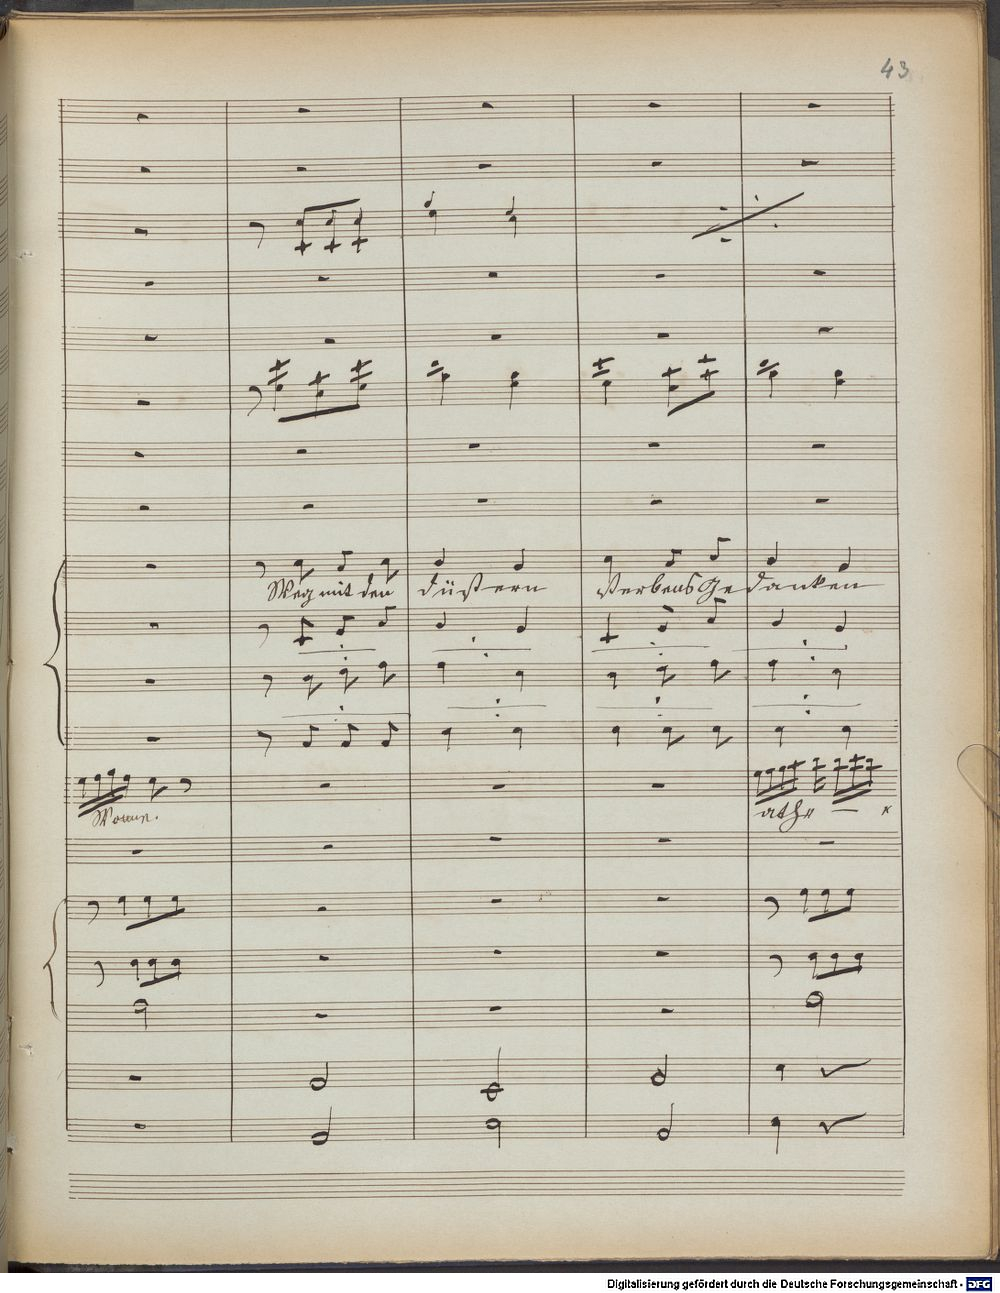 43
Weg mit den düstern Sterbens Gedanken
Wonne.
athe –
Digitalisierung gefördert durch die Deutsche Forschungsgemeinschaft - DFG